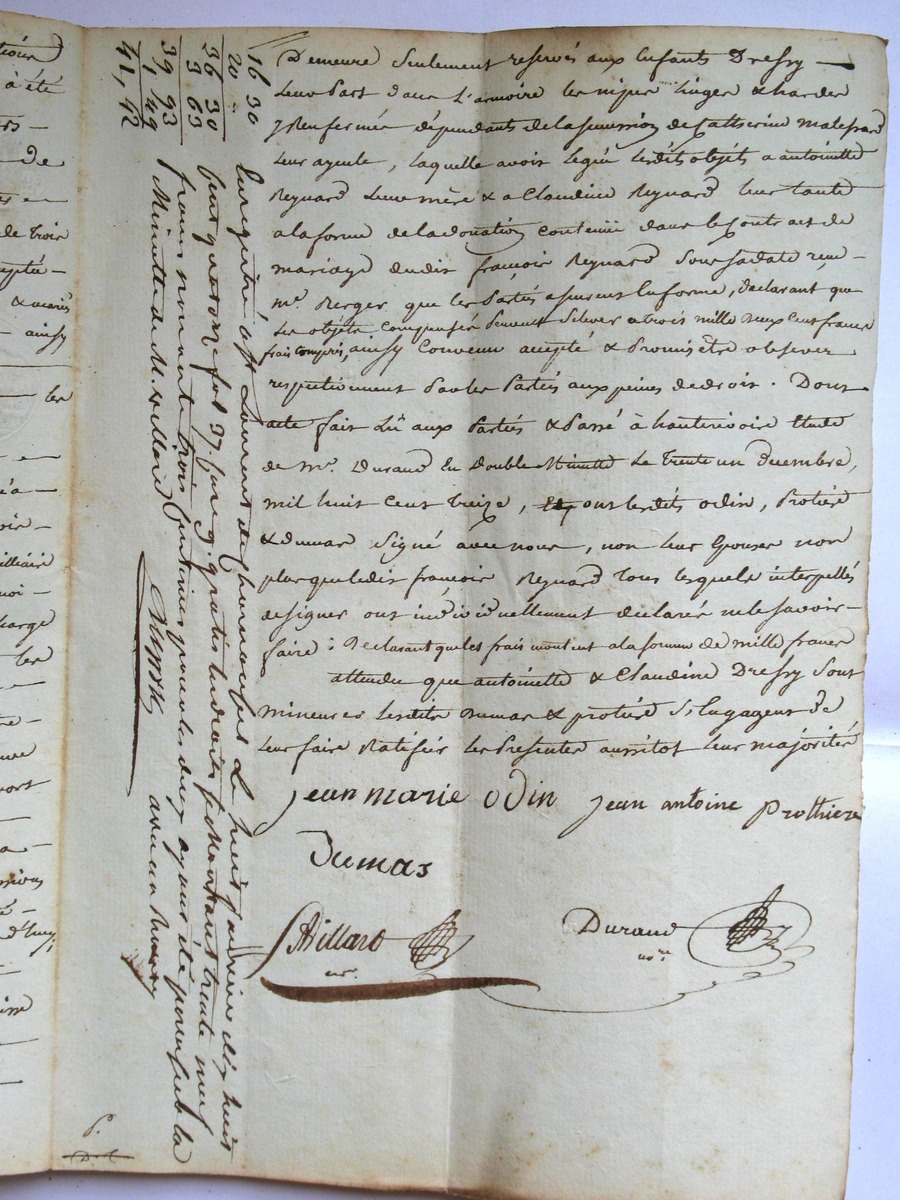 Demeure Seulement reservés aux Enfants Dressy —
Leur Part dans L'armoire les nipes linges & hardes
y Renfermés dépendants de la succession de Catherine
Leur ayeule, Laquelle avoit Legué lesdits objets a antoinette
Reynard Leur mère & a Claudine Reynard leur tante
a la forme de la donation contenue dans le Contract de
mariage dudit françois Reynard Sous sa date reçu —
Me. Berger que les Parties assurent En forme, declarant que
Les objets Compensés Peuvent S'elever a trois mille deux Cent francs
frais compris, ainsy Convenu accepté & Promis être observer
respectivement Par les Parties aux peines de droit. Dont
acte fait Lû aux Parties & Passé à hauterivoire Etude
de Me. Durand En Double Minutte Le Trente un Decembre,
mil huit Cent Treize, ont lesdits odin, Protière
& dumas Signé avec nous, non leur Epouses non
plus que ledit françois Reynard Tous lesquels interpellés
de signer ont individuellement déclarés ne le Savoir —
faire : Declarant que les frais montent a la somme de mille francs
attendu que antoinette & Claudine Dressy Sont
mineures Lesdits Dumas & protière S'Engagent de
Leur faire Ratifier Les Presentes aussitot leur majorités
jean marie odin
jean antoine prothiere
Dumas
Durand
nore
16 30
20
36 30
3 63
39 93
1, 49
41, 42
Enregistré à St Laurent de Chamousset Le huit janvier dix huit
cent quatorze fol 37. gratis les droits se montant trente neuf
francs nonante trois centimes pour les deux ayant été perçu sur la
Minutte de M.